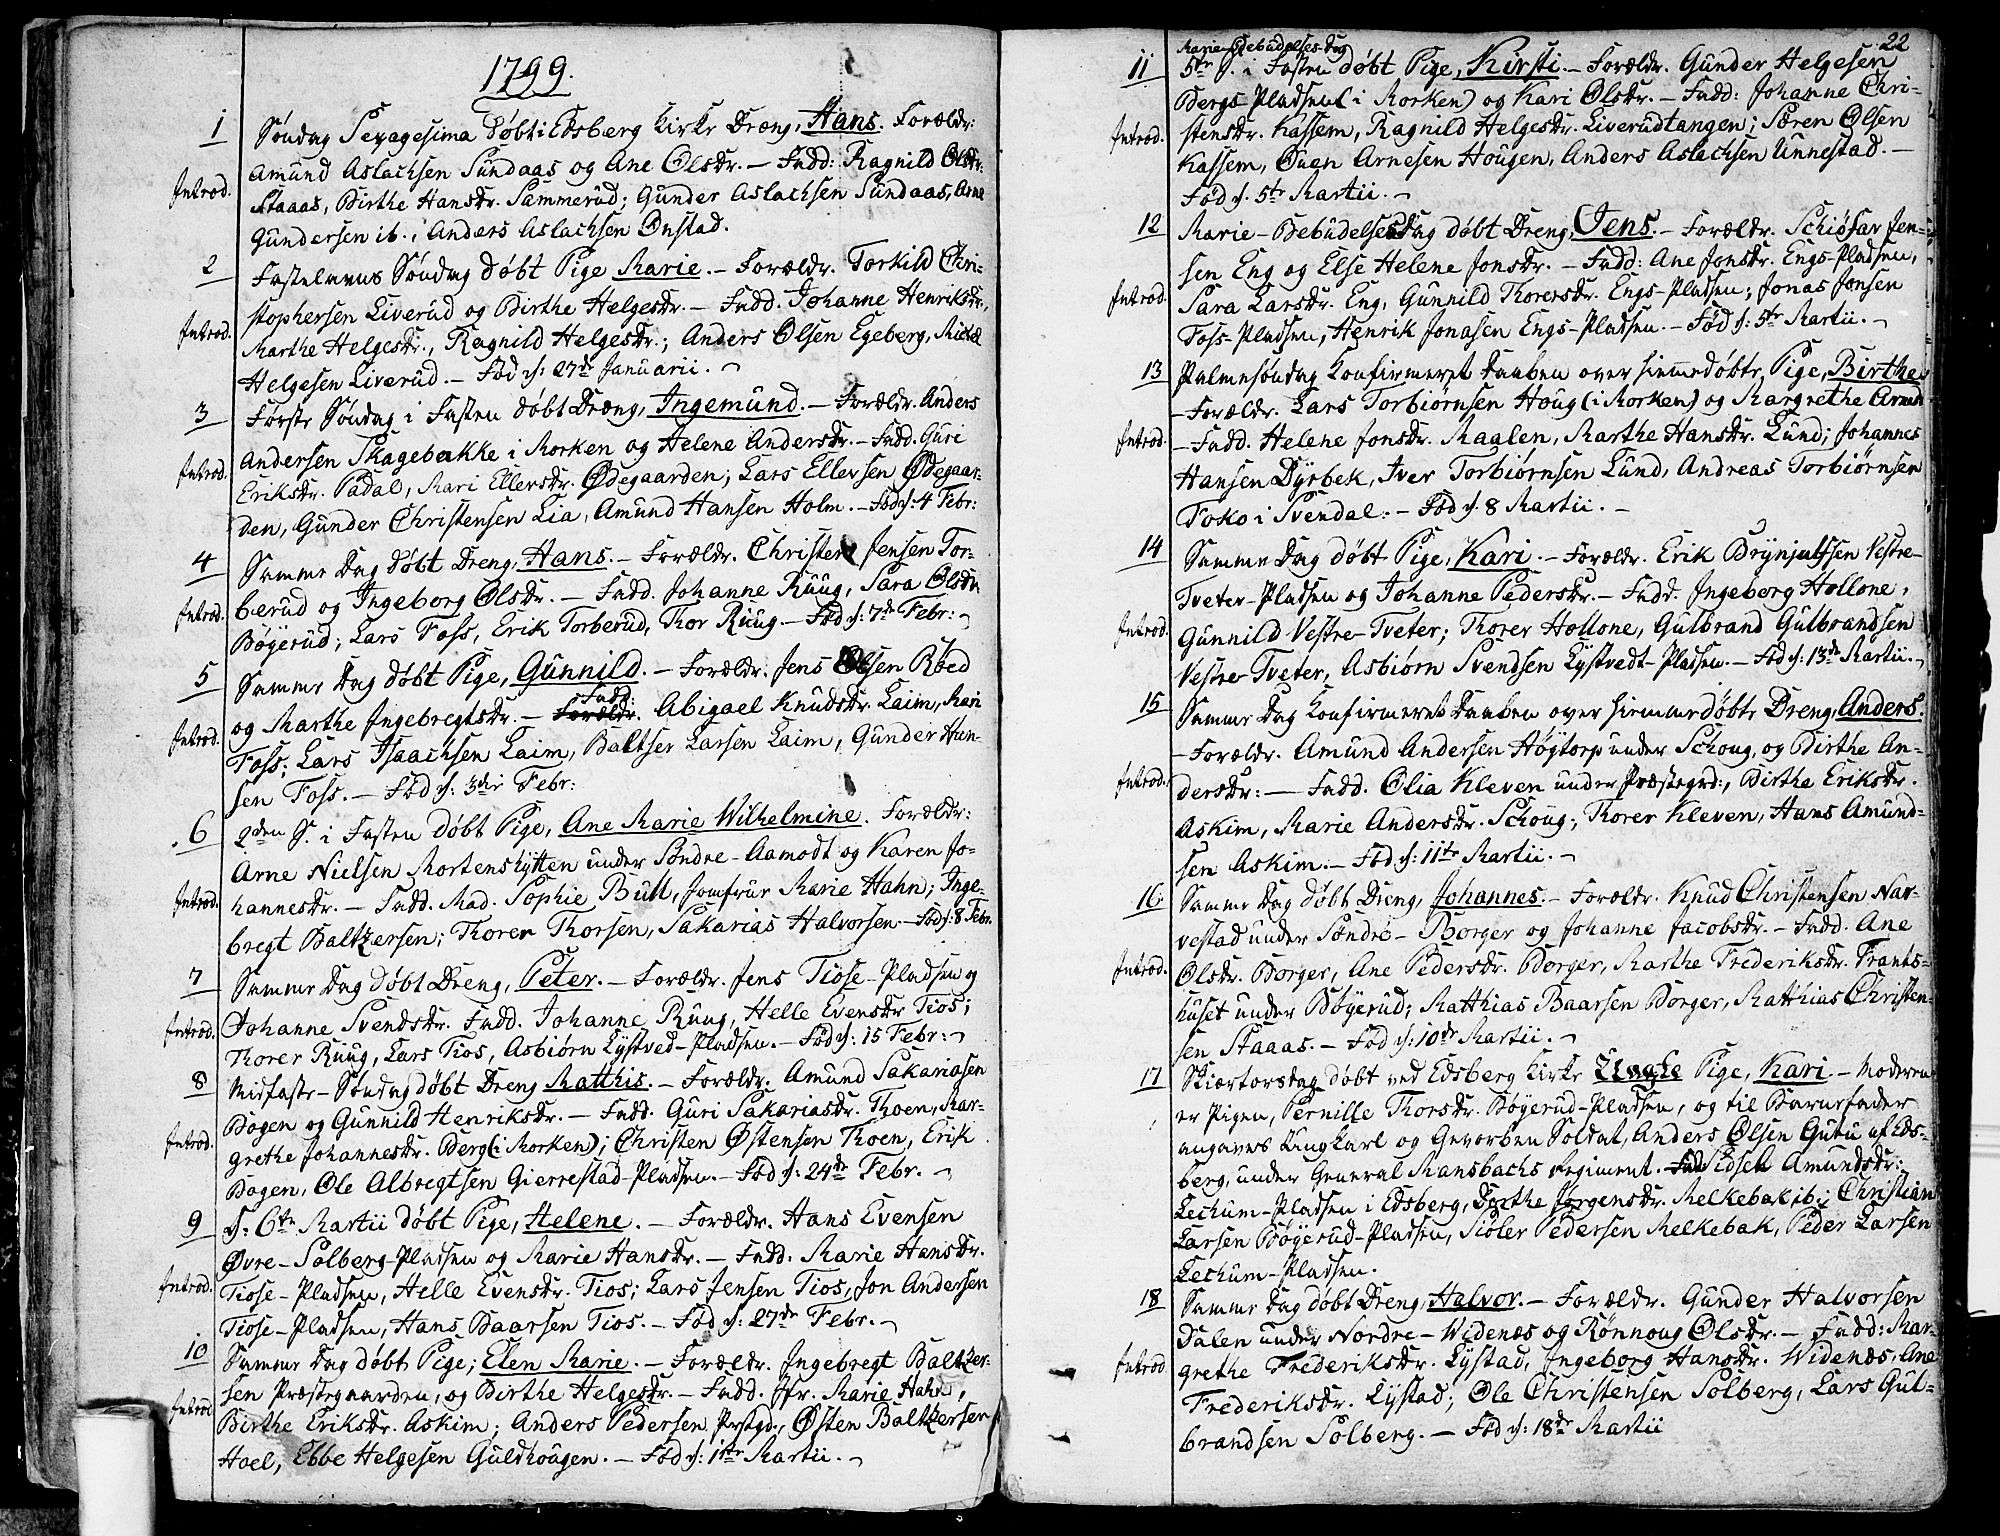 1799.
1
Søndag Sexagesima Døbt i Edsberg Kirke Dreng, Hans. Forældr:
Introd.
Amund Aslachsen Sundaas og Ane Olsdr. – Fadd: Ragnild Olsdr.
Staaas, Birthe Hansdr. Sammerud; Gunder Aslachsen Sundaas, Arne
Gundersen ib., Anders Aslachsen Onstad.
2
Fastelavns Søndag døbt Pige Marie. – Forældr. Torkild Chri-
Introd.
stophersen Liverud og Birthe Helgesdr. – Fadd. Johanne Henriksdr.,
Marthe Helgesdr., Ragnild Helgesdr.; Anders Olsen Egeberg, Michel
Helgesen Liverud. – Fød d: 27de Januarii. –
3
Første Søndag i Fasten døbt Dreng, Ingemund. – Forældr. Anders
Introd.
Andersen Skagebakke i Morken og Helene Andersdr. – Fadd. Guri
Eriksdr. Padal, Mari Ellevsdr. Ødegaarden; Lars Ellevsen Ødegaar-
den, Gunder Christensen Lia, Amund Hansen Holm. – Fød d: 4 Febr:
4
Samme Dag døbt Dreng, Hans. – Forældr. Christen Jensen Tor-
Introd.
berud og Ingeborg Olsdr. – Fadd. Johanne Ruug, Sara Olsdr.
Bøyerud; Lars Foss, Erik Torberud, Thor Ruug – Fød d: 7de Febr: –
5
Samme Dag døbt Pige, Gunnild. – Forældr. Jens Olsen Røed
Introd.
og Marthe Ingebregtsdr. – Fadd: Abigael Knudsdr. Laim, Mari
Foss; Lars Isaachsen Laim, Baltser Larsen Laim, Gunder Han-
sen Foss. – Fød d: 3die Febr:
6
2den S. i Fasten døbt Pige, Ane Marie Wilhelmine. Forældr:
Introd.
Arne Nielsen Mortenshytten under Søndre-Aamodt og Karen Jo-
hannesdr. – Fadd. Mad. Sophie Bull, Jomfrue Marie Hahn; Inge-
bregt Baltzersen; Thorer Thorsen, Sakarias Halvorsen – Fød d: 8 Febr.
7
Samme Dag døbt Dreng, Peter. – Forældr. Jens Tiose-Pladsen og
Introd.
Johanne Svendsdr. Fadd. Johanne Ruug, Helle Evensdr Tios;
Thorer Ruug, Lars Tios, Asbiørn Lystved-Pladsen. – Fød d: 15 Febr: –
8
Midfaste-Søndag døbt Dreng Matthis. – Forældr. Amund Sakariasen
Introd.
Bogen og Gunnild Henriksdr. – Fadd. Guri Sakariasdr. Thoen, Mar-
grethe Johannesdr. Berg (i Morken); Christen Østensen Thoen, Erik
Bogen, Ole Albregtsen Gierrestad-Pladsen. – Fød d: 24de Febr. –
9
d: 6te Martii døbt Pige, Helene. – Forældr. Hans Evensen
Introd.
Øvre-Solberg-Pladsen og Marie Hansdr. – Fadd: Marie Hansdr.
Tiose-Pladsen, Helle Evensdr. Tios; Lars Jensen Tios, Jon Andersen
Tiose-Pladsen, Hans Baarsen Tios. – Fød d: 27de Febr. –
10
Samme Dag døbt Pige, Elen Marie. – Forældr. Ingebregt Baltzer-
Introd.
sen Præstegaarden, og Birthe Helgesdr – Fadd. Jfr. Marie Hahn,
Birthe Eriksdr. Askim; Anders Pedersen Prstgd., Østen Baltzersen
Hoel, Ebbe Helgesen Guldhougen. – Fød d: 1te Martii. –
22
Mariæ Bebudelses-Dag
11
5te S. i Fasten døbt Pige, Kirsti. – Forældr. Gunder Helgesen
Introd.
Bergs Pladsen (i Morken) og Kari Olsdr. – Fadd: Johanne Chri-
stensdr. Kassem, Ragnild Helgesdr. Liverudtangen; Søren Olsen
Kassem, Ouen Arnesen Hougen, Anders Aslachsen Unnestad. –
Fød d. 5te Martii. –
12
Marie-Bebudelses Dag døbt Dreng, Jens. – Forældr. Schiøfar Jen-
Introd.
sen Eng og Else Helene Jonsdr. – Fadd: Ane Jonsdr. Engs-Pladsen,
Sara Larsdr. Eng, Gunnild Thorersdr. Engs-Pladsen; Jonas Jonsen
Foss-Pladsen, Henrik Jonasen Engs-Pladsen. – Fød d: 5te Martii. –
13
Palmesøndag Confirmeret Daaben over hiemmedøbte Pige, Birthe.
Introd.
– Forældr. Lars Torbiørnsen Houg (i Morken) og Margrethe Arnesdr.
– Fadd. Helene Jonsdr. Maalen, Marthe Hansdr. Lund; Johannes
Hansen Dyrbek, Iver Torbiørnsen Lund, Andreas Torbiørnsen
Foko i Svendal. – Fød d. 8 Martii. –
14
Samme Dag døbt Pige, Kari. – Forældr. Erik Brynjulfsen Vestre-
Introd.
Tveter-Pladsen og Johanne Pedersdr. – Fadd. Ingeborg Hollone,
Gunnild Vestre-Tveter; Thorer Hollone, Gulbrand Gulbrandsen
Vestre-Tveter, Asbiørn Svendsen Lystvedt-Pladsen. – Fød d: 13de Martii. –
15
Samme Dag Confirmeret Daaben over hiemmedøbte Dreng, Anders.
Introd.
– Forældr. Amund Andersen Høytorp under Schoug, og Birthe An-
dersdr: – Fadd. Olia Kleven under Præstegrd:, Birthe Eriksdr.
Askim, Marie Andersdr. Schoug; Thorer Kleven, Hans Amund-
sen Askim. – Fød d: 11te Martii. –
16
Samme Dag døbt Dreng, Johannes. – Forældr. Knud Christensen Nar-
Introd.
vestad under Søndre-Borger og Johanne Jacobsdr. – Fadd. Ane
Olsdr. Borger, Ane Pedersdr. Borger, Marthe Frederiksdr. Frants-
huset under Bøyerud; Matthias Baarsen Borger, Matthias Christen-
sen Staaas. – Fød d: 10de Martii. –
17
Skiærtorsdag døbt ved Edsberg Kirke Uægte Pige, Kari. – Moderen
er Pigen, Pernille Thorsdr. Bøyerud-Pladsen, og til Barnefader
angaves Ungkarl og Gevorben Soldat, Anders Olsen Gutu af Eds-
berg, under General Mansbachs Regiment. Fad Sidsel Amundsdr:
Lechum-Pladsen i Edsberg, Dorthe Jørgensdr. Melkebak ib.; Christian
Larsen Bøyerud-Pladsen, Siøler Pedersen Melkebak, Peder Larsen
Lechum-Pladsen.
18
Samme Dag døbt Dreng, Halvor. – Forældr. Gunder Halvorsen
Introd
Dalen under Nordre-Widenæs og Rønnoug Olsdr. – Fadd: Mar-
grethe Frederiksdr. Lystad, Ingeborg Hansdr. Widenæs, Ane
Frederiksdr. Lystad; Ole Christensen Solberg, Lars Gul-
brandsen Solberg. – Fød d: 18de Martii